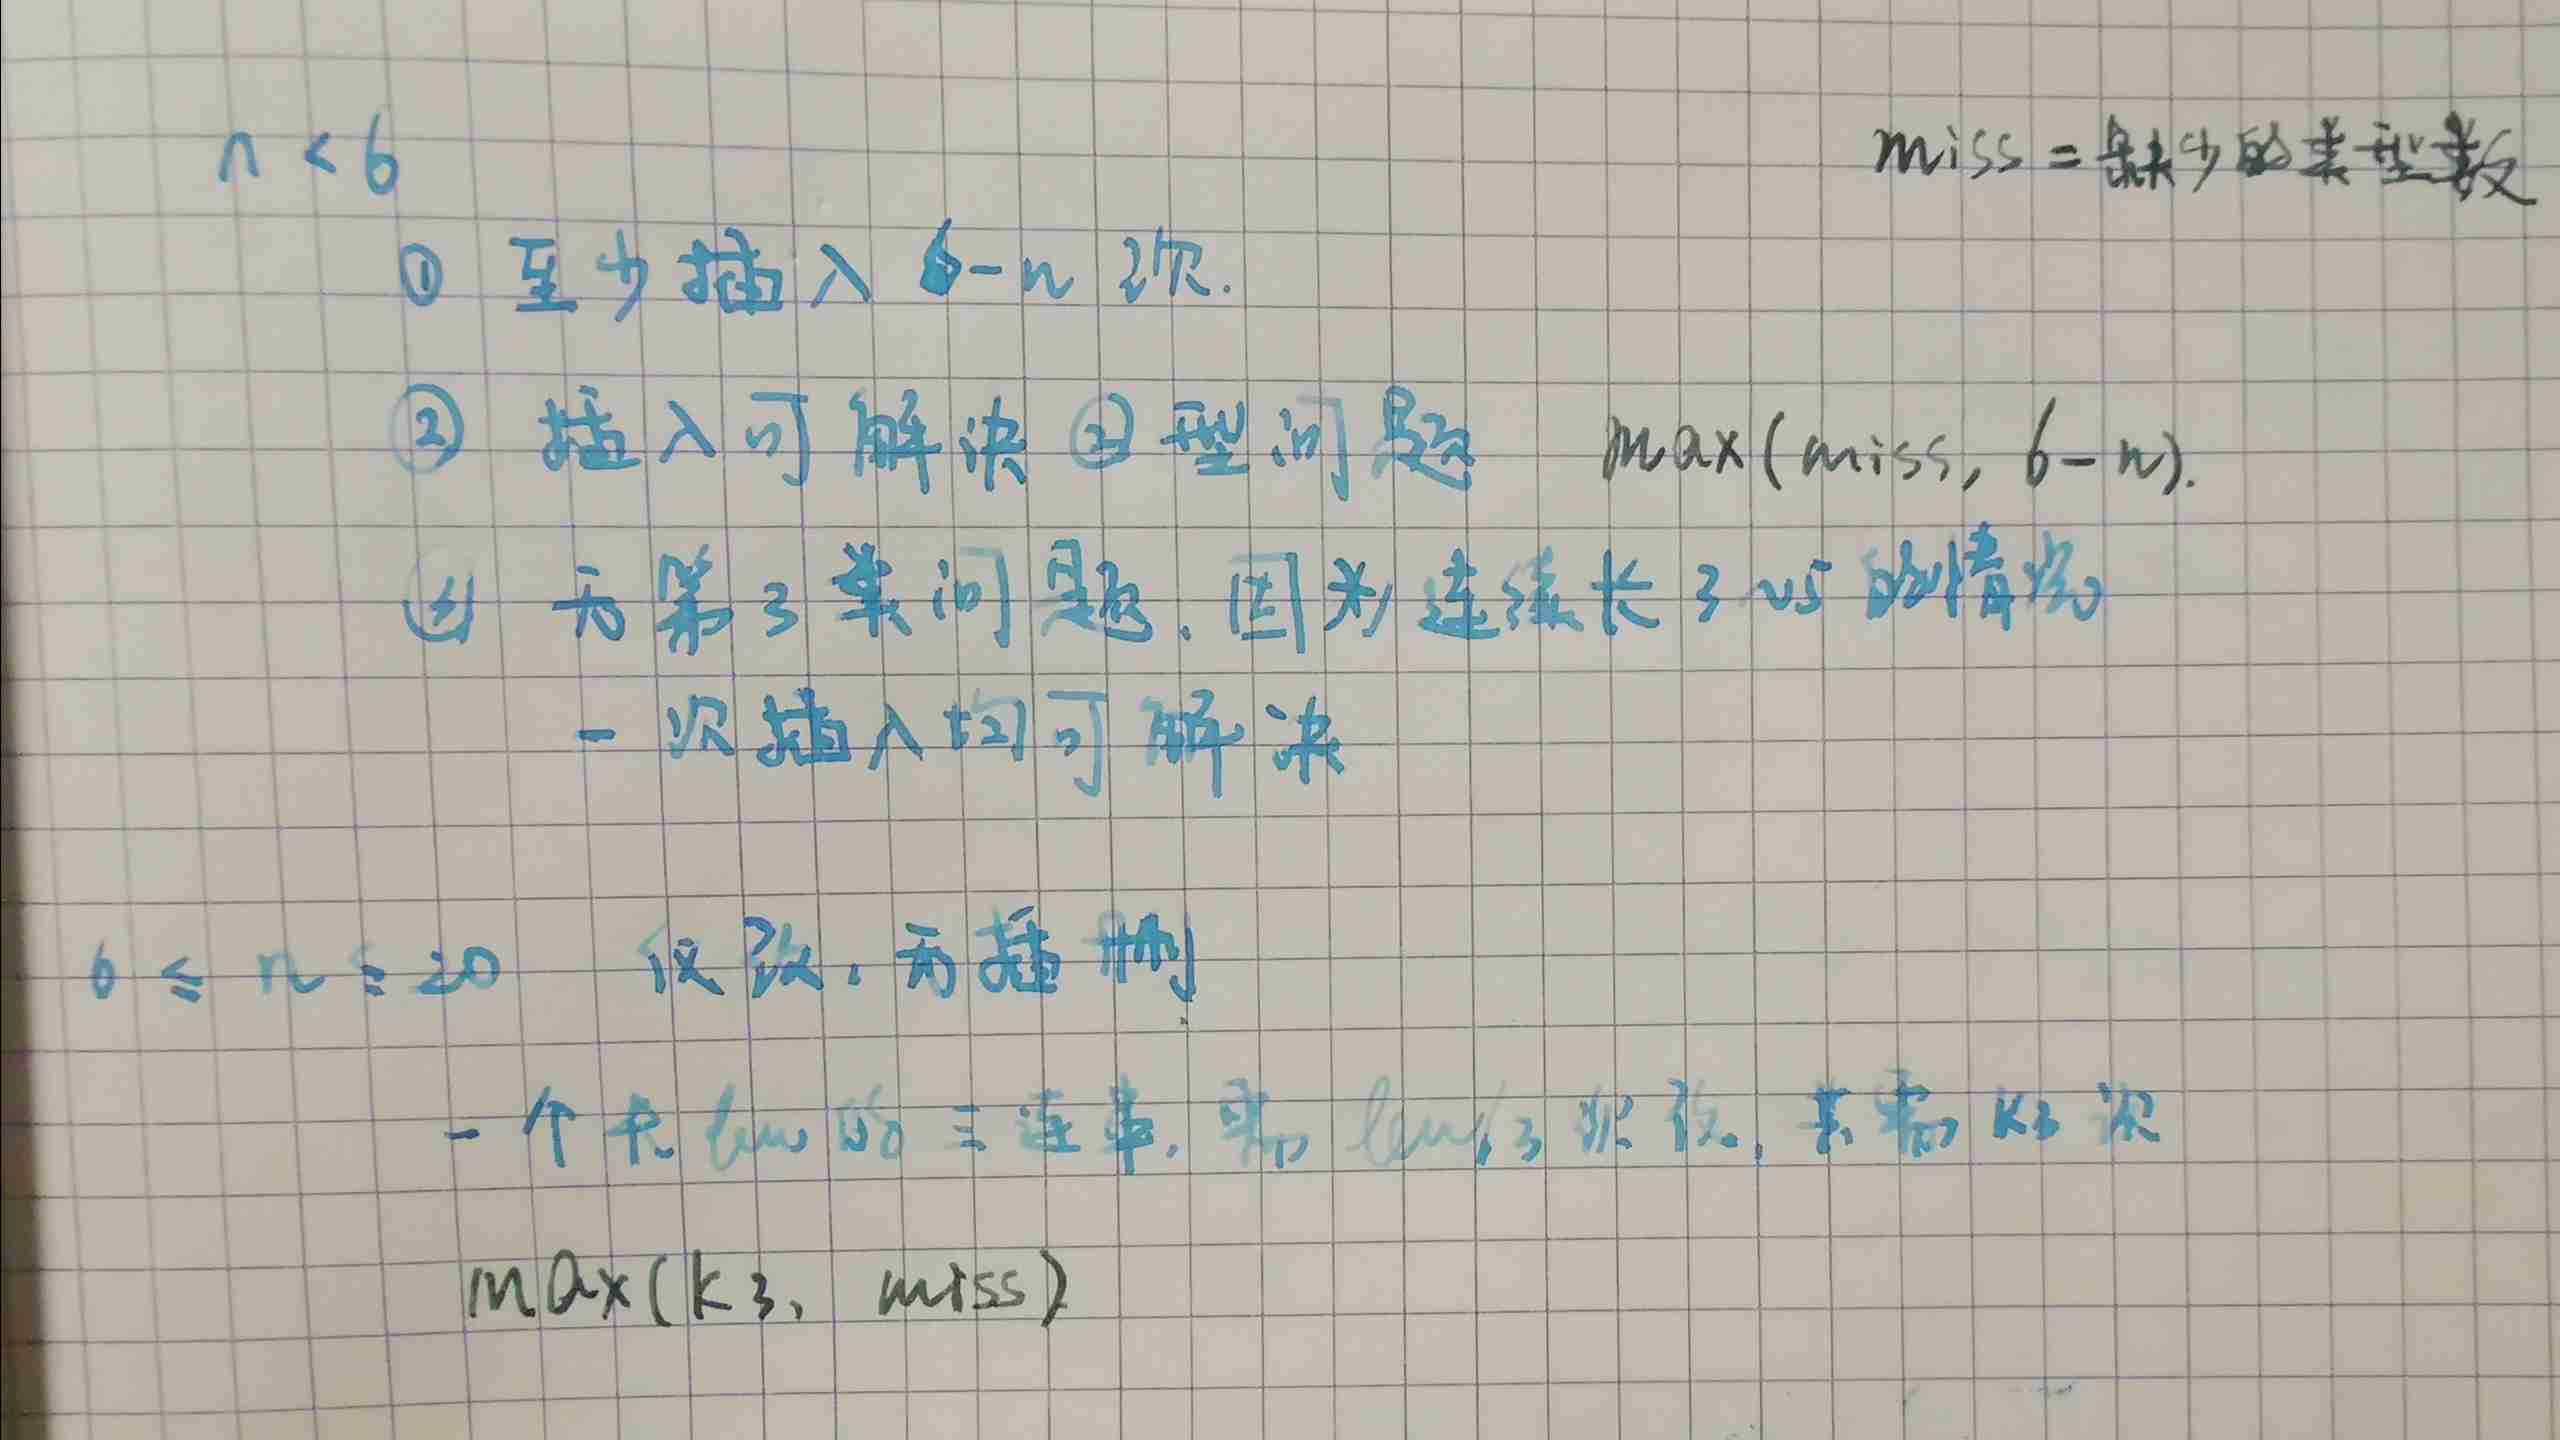 n < 6
miss = 缺少的类型数
① 至少插入 6-n 次.
② 插入可解决②型问题 max(miss, 6-n).
③ 无第3类问题. 因为连续长3~5的情况
一次插入均可解决
6 ≤ n ≤ 20 仅改, 无插删
一个长len的三连串, 需len/3次改, 共需k3次
max(k3, miss)